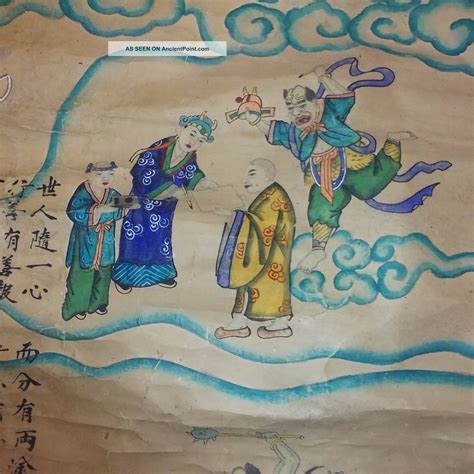 AS SEEN ON AncientPoint.com
世人隨一心
行善有善報
而分有兩途